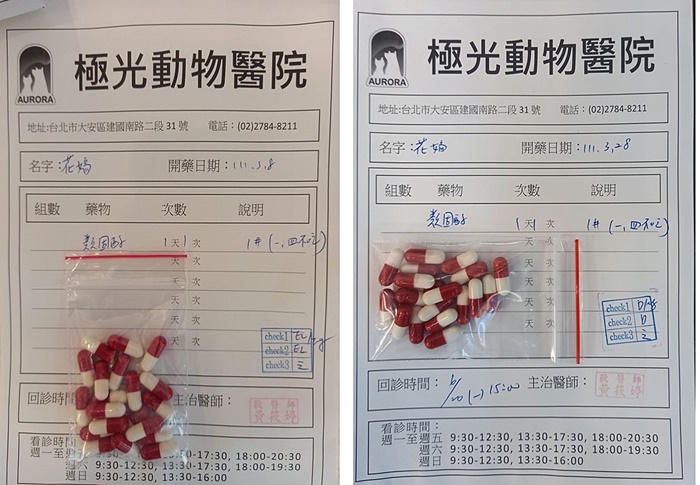 極光動物醫院
AURORA
地址:台北市大安區建國南路二段31號 電話:(02)2784-8211
名字:花嬌 開藥日期:111.3.8
組數 藥物 次數 說明
類固醇 1天1次 1#(一,四不吃)
天 次
天 次
天 次
天 次
天 次
check1 EL
check2 EL
check3
回診時間: 主治醫師:
獸醫師
黃筱婷
看診時間:
週一至週五 9:30-12:30, 13:30-17:30, 18:00-20:30
週六 9:30-12:30, 13:30-17:30, 18:00-19:30
週日 9:30-12:30, 13:30-16:00
極光動物醫院
AURORA
地址:台北市大安區建國南路二段31號 電話:(02)2784-8211
名字:花嬌 開藥日期:111.3.28
組數 藥物 次數 說明
類固醇 1天1次 1#(一,四不吃)
天 次
天 次
天 次
天 次
天 次
check1
check2 D
check3
回診時間: (一) 15:00 主治醫師:
獸醫師
黃筱婷
看診時間:
週一至週五 9:30-12:30, 13:30-17:30, 18:00-20:30
週六 9:30-12:30, 13:30-17:30, 18:00-19:30
週日 9:30-12:30, 13:30-16:00